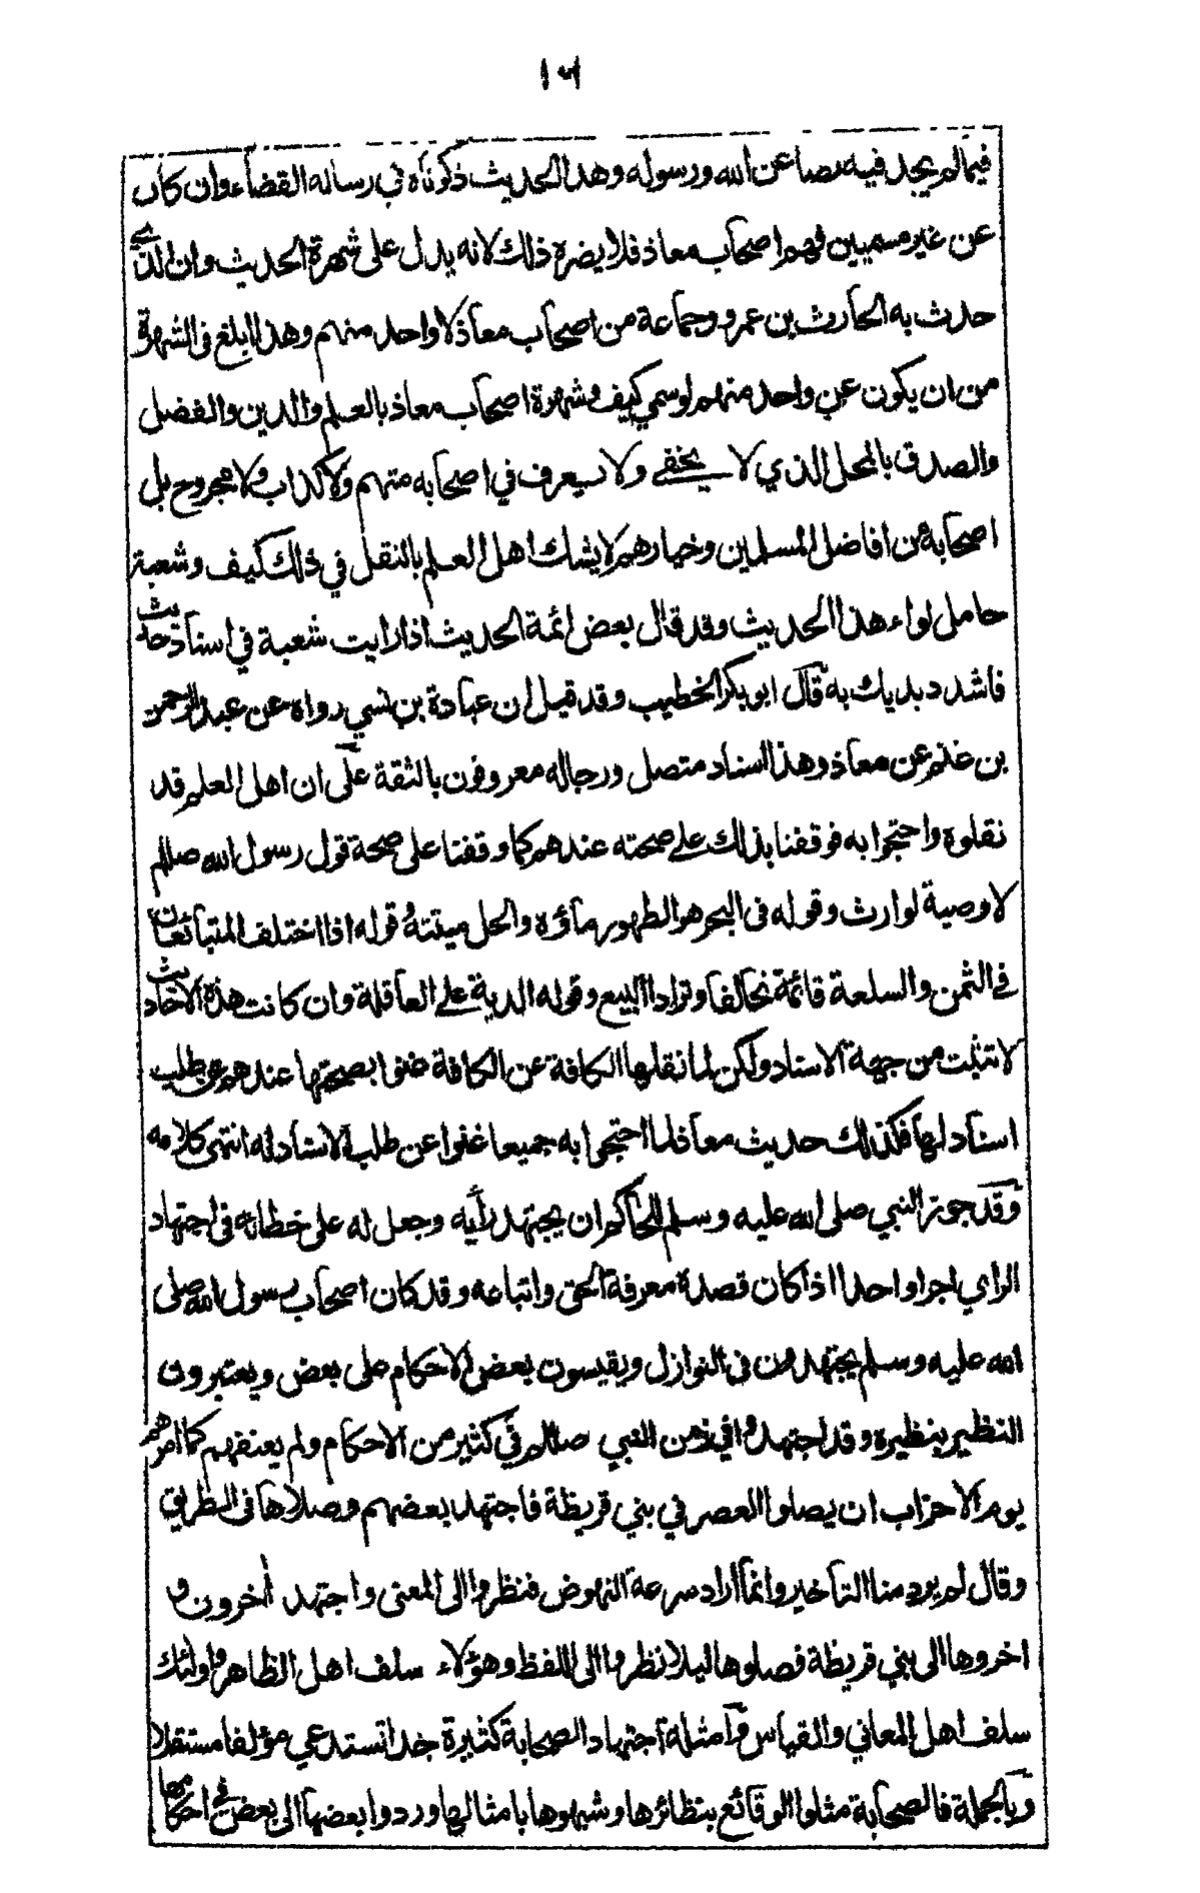 ١٦
فيما لم يجد فيه نصا عن الله ورسوله وهذا الحديث ذكرناه في رسالة القضاء وان كان
عن غير مسميين فهم اصحاب معاذ فلا يضره ذلك لانه يدل على شهرة الحديث وان الذي
حدث به الحارث بن عمرو وجماعة من اصحاب معاذ لا واحد منهم وهذا ابلغ في الشهرة
من ان يكون عن واحد منهم لو سمي كيف وشهرة اصحاب معاذ بالعلم والدين والفضل
والصدق بالمحل الذي لا يخفى ولا يعرف في اصحابه متهم ولا كذاب ولا مجروح بل
اصحابه من افاضل المسلمين وخيارهم لا يشك اهل العلم بالنقل في ذلك كيف وشعبة
حامل لواء هذا الحديث وقد قال بعض ائمة الحديث اذا رايت شعبة في اسناد حديث
فاشدد يديك به قال ابو بكر الخطيب وقد قيل ان عبادة بن نسي رواه عن عبد الرحمن
بن غنم عن معاذ وهذا اسناد متصل ورجاله معروفون بالثقة على ان اهل العلم قد
نقلوه واحتجوا به فوقفنا بذلك على صحته عندهم كما وقفنا على صحة قول رسول الله صللم
لا وصية لوارث وقوله في البحر هو الطهور ماؤه والحل ميتته وقوله اذا اختلف المتبائعان
في الثمن والسلعة قائمة تحالفا وترادا البيع وقوله الدية على العاقلة وان كانت هذه الاحاديث
لا تثبت من جهة الاسناد ولكن لما نقلها الكافة عن الكافة غنوا بصحتها عندهم عن طلب
اسناد لها فكذلك حديث معاذ لما احتجوا به جميعا غنوا عن طلب الاسناد له انتهى كلامه
وقد جوز النبي صلى الله عليه وسلم للحاكم ان يجتهد رأيه وجعل له على خطائه في اجتهاد
الراي اجرا واحدا اذا كان قصده معرفة الحق واتباعه وقد كان اصحاب رسول الله صلى
الله عليه وسلم يجتهدون في النوازل ويقيسون بعض الاحكام على بعض ويعتبرون
النظير بنظيره وقد اجتهدوا في زمن النبي صللم في كثير من الاحكام ولم يعنفهم كما امرهم
يوم الاحزاب ان يصلوا العصر في بني قريظة فاجتهد بعضهم وصلاها في الطريق
وقال لم يرد منا التأخير وانما اراد سرعة النهوض فنظروا الى المعنى واجتهد أخرون و
اخروها الى بني قريظة فصلوها ليلا نظروا الى اللفظ وهؤلاء سلف اهل الظاهر واولئك
سلف اهل المعاني والقياس وامثلة اجتهاد الصحابة كثيرة جدا تستدعي مؤلفا مستقلا
وبالجملة فالصحابة مثلوا الوقائع بنظائرها وشبهوها بامثالها وردوا بعضها الى بعض في احكامها